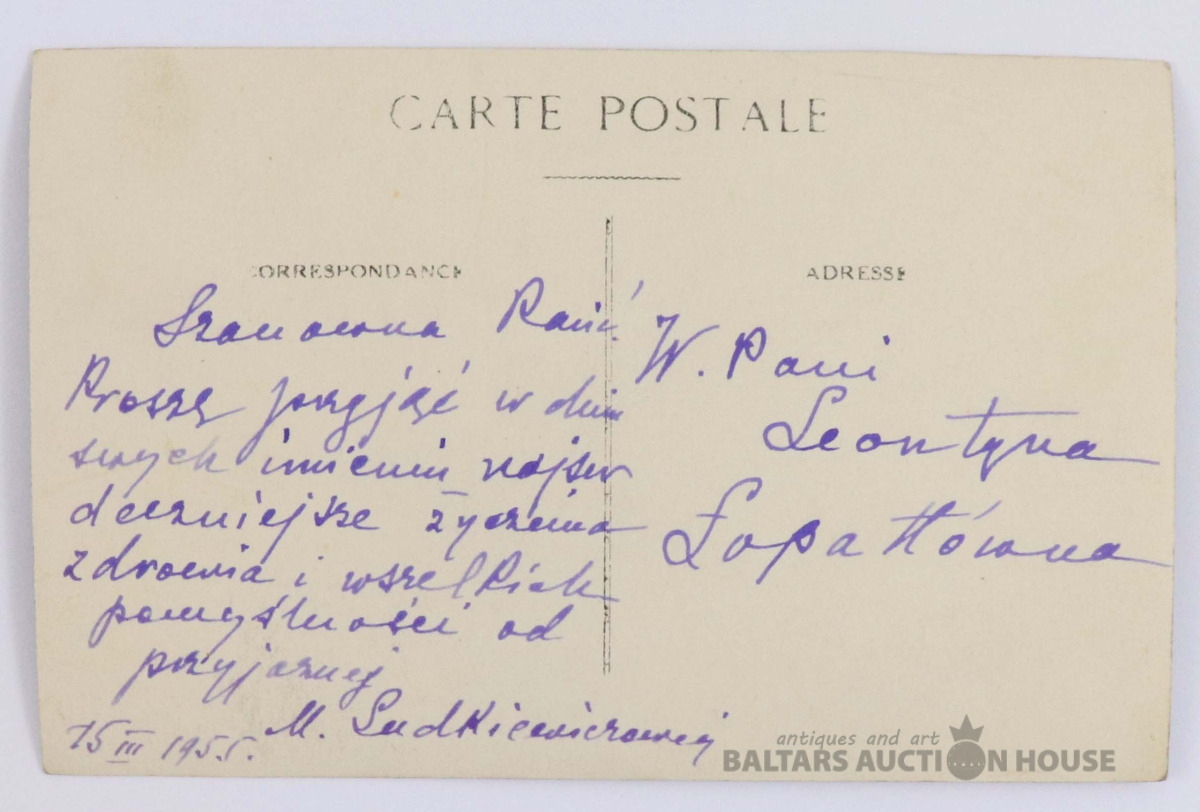 CARTE POSTALE
CORRESPONDANCE
ADRESSE
Szanowna Pani
Proszę przyjąć w dniu
swych imienin najser
deczniejsze życzenia
zdrowia i wszelkich
pomyślności od
przyjaznej
M. Ludkiewiczowej
15 III 1955.
W. Pani
Leontyna
Łopattówna
antiques and art
BALTARS AUCTION HOUSE